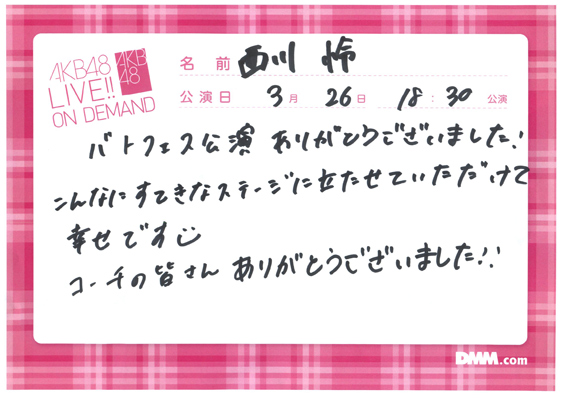 AKB48
LIVE!!
ON DEMAND
AKB
48
名前 西川 怜
公演日 3月 26日 18:30 公演
バトフェス公演 ありがとうございました!
こんなにすてきなステージに立たせていただけて
幸せです
コーチの皆さん ありがとうございました!!
DMM.com